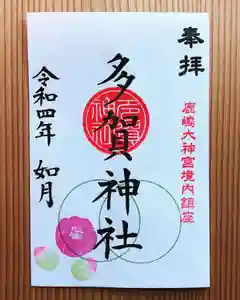 奉拝
鹿嶋大神宮境内鎮座
多賀神社
令和四年 如月